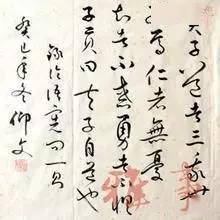 君子道者三我無
能焉仁者無憂
知者不惑勇者不懼
子貢曰夫子自道也
錄論語憲問一則
癸巳年冬仰文